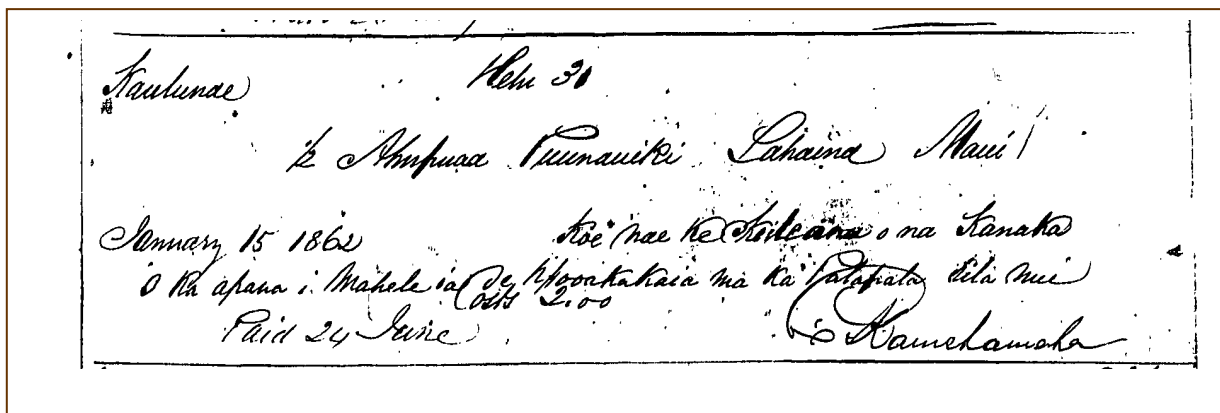 Kaulunae Helu 31
½ Ahupuaa Puunauiki Lahaina Maui
January 15 1862 Koe nae ke Kuleana o na Kanaka
O ka apana i Mahele ia hooakakaia ma ka Palapala Sila nui
Costs 2.00
Paid 24 June Kamehameha